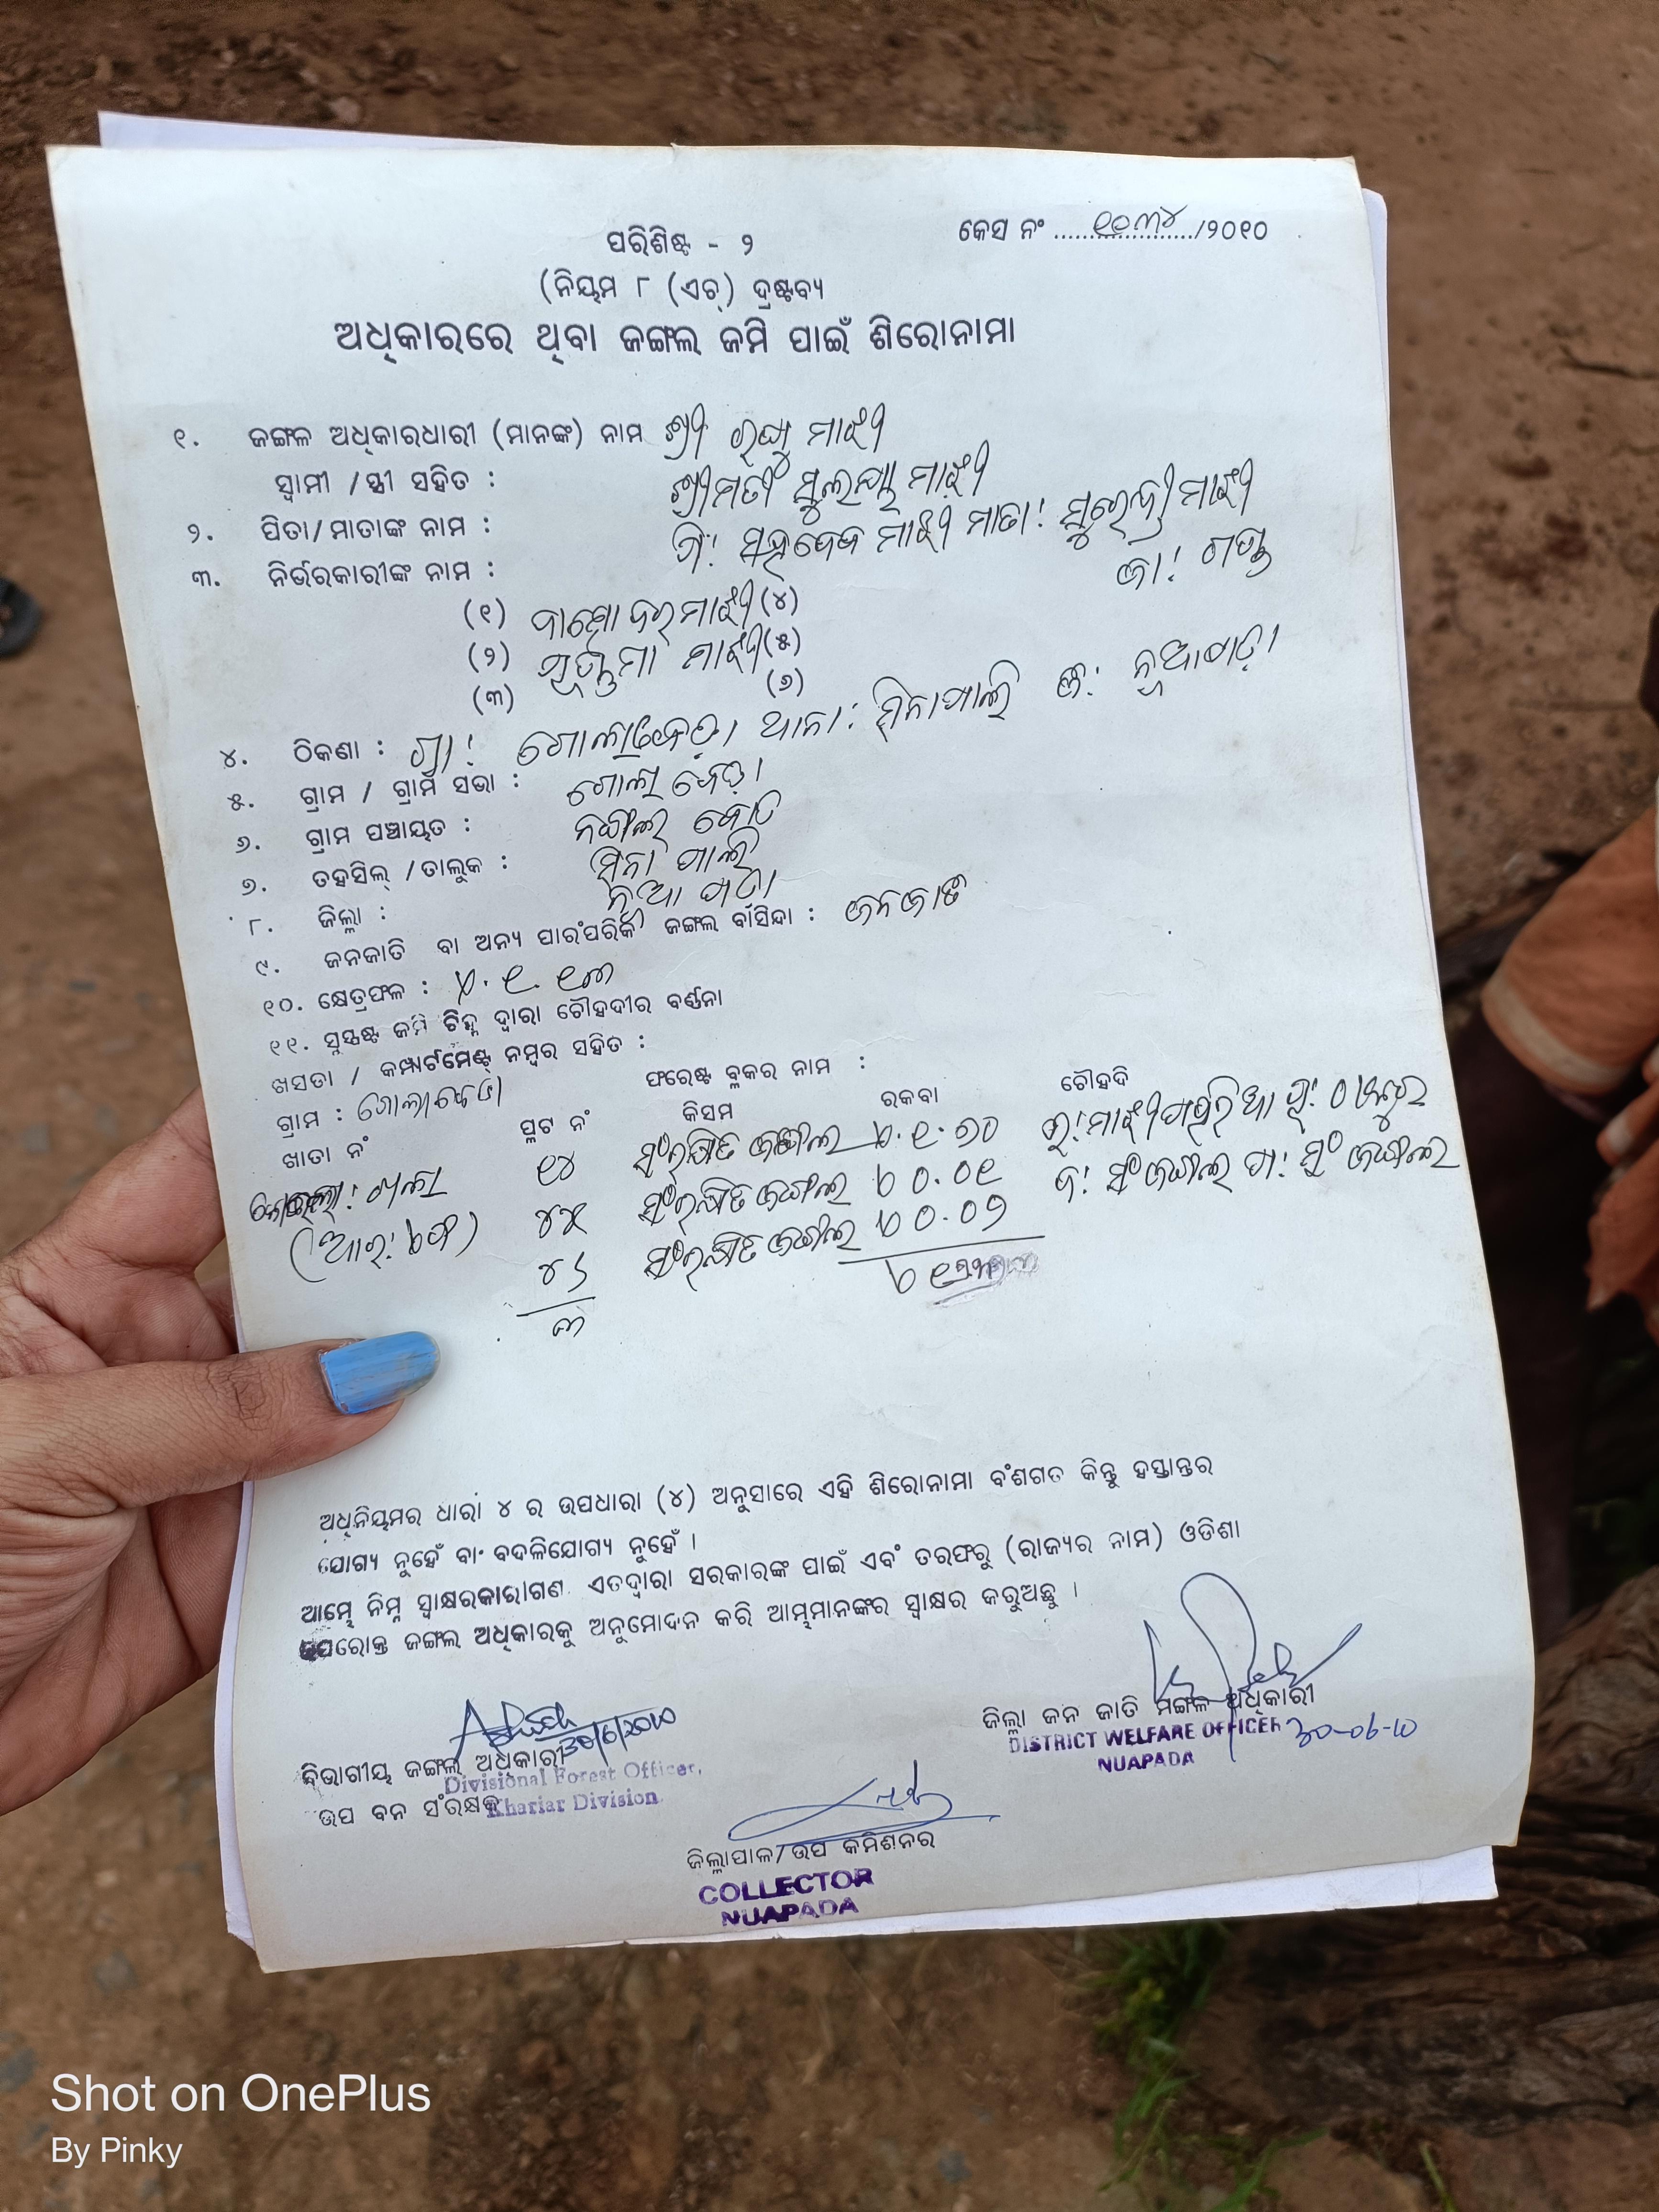 ପରିଶିଷ୍ଟ - ୨
କେସ ନଂ ....୧୦୩୪..../୨୦୧୦
(ନିୟମ ୮ (ଏଚ୍) ଦ୍ରଷ୍ଟବ୍ୟ
ଅଧିକାରରେ ଥିବା ଜଙ୍ଗଲ ଜମି ପାଇଁ ଶିରୋନାମା
୧. ଜଙ୍ଗଳ ଅଧିକାରଧାରୀ (ମାନଙ୍କ) ନାମ ଶ୍ରୀ ରଘୁ ମାଝୀ
ସ୍ଵାମୀ /ସ୍ତ୍ରୀ ସହିତ : ଶ୍ରୀମତୀ ମାଝୀ
୨. ପିତା/ମାତାଙ୍କ ନାମ : ପି: ସହଦେବ ମାଝୀ ମାତା: ମାଝୀ
୩. ନିର୍ଭରକାରୀଙ୍କ ନାମ : ଜା: ଗଣ୍ଡ
(୧) ଦାମୋଦର ମାଝୀ (୪)
(୨) ମାଝୀ (୫)
(୩) (୬)
୪. ଠିକଣା : ଗ୍ରା: ଗୋଲାବେଡ଼ା ଥାନା: ସିନାପାଲି ଜି: ନୂଆପଡ଼ା
୫. ଗ୍ରାମ / ଗ୍ରାମ ସଭା : ଗୋଲାବେଡ଼ା
୬. ଗ୍ରାମ ପଞ୍ଚାୟତ : ନଙ୍ଗଲ ବୋଡ
୭. ତହସିଲ୍ /ତାଲୁକ : ସିନାପାଲି
୮. ଜିଲ୍ଲା : ନୂଆପଡା
୯. ଜନଜାତି ବା ଅନ୍ୟ ପାରଂପରିକ ଜଙ୍ଗଲ ବାସିନ୍ଦା : ଜନଜାତି
୧୦. କ୍ଷେତ୍ରଫଳ : ୧.୧୩
୧୧. ସୁସ୍ପଷ୍ଟ ଜମି ଚିହ୍ନ ଦ୍ଵାରା ଚୌହଦୀର ବର୍ଣ୍ଣନା
ଖସଡା / କମ୍ପାର୍ଟମେଣ୍ଟ୍ ନମ୍ବର ସହିତ :
ଗ୍ରାମ : ଗୋଲାବେଡା ଫରେଷ୍ଟ ବ୍ଲକର ନାମ :
ଖାତା ନଂ ପ୍ଳଟ ନଂ କିସମ ରକବା ଚୌହଦି
୧୪ ସଂରକ୍ଷିତ ଜଙ୍ଗଲ
୪୫ ସଂରକ୍ଷିତ ଜଙ୍ଗଲ ୦.୦୧ ଦ: ସଂ ଜଙ୍ଗଲ ପ: ସଂ ଜଙ୍ଗଲ
୪୬ ସଂରକ୍ଷିତ ଜଙ୍ଗଲ ୦.୦୨
୩
ଅଧିନିୟମର ଧାରା ୪ ର ଉପଧାରା (୪) ଅନୁସାରେ ଏହି ଶିରୋନାମା ବଂଶଗତ କିନ୍ତୁ ହସ୍ତାନ୍ତର
ଯୋଗ୍ୟ ନୁହେଁ ବା ବଦଳିଯୋଗ୍ୟ ନୁହେଁ ।
ଆମ୍ଭେ ନିମ୍ନ ସ୍ଵାକ୍ଷରକାରୀଗଣ ଏତଦ୍ଵାରା ସରକାରଙ୍କ ପାଇଁ ଏବଂ ତରଫରୁ (ରାଜ୍ୟର ନାମ) ଓଡିଶା
ଉପରୋକ୍ତ ଜଙ୍ଗଲ ଅଧିକାରକୁ ଅନୁମୋଦନ କରି ଆମ୍ଭମାନଙ୍କର ସ୍ଵାକ୍ଷର କରୁଅଛୁ ।
30/6/2010
ବିଭାଗୀୟ ଜଙ୍ଗଲ ଅଧିକାରୀ
Divisional Forest Officer,
ଉପ ବନ ସଂରକ୍ଷକ
Khariar Division
ଜିଲ୍ଲା ଜନ ଜାତି ମଙ୍ଗଳ ଅଧିକାରୀ
DISTRICT WELFARE OFFICER 30-06-10
NUAPADA
ଜିଲ୍ଲାପାଳ/ଉପ କମିଶନର
COLLECTOR
NUAPADA
Shot on OnePlus
By Pinky